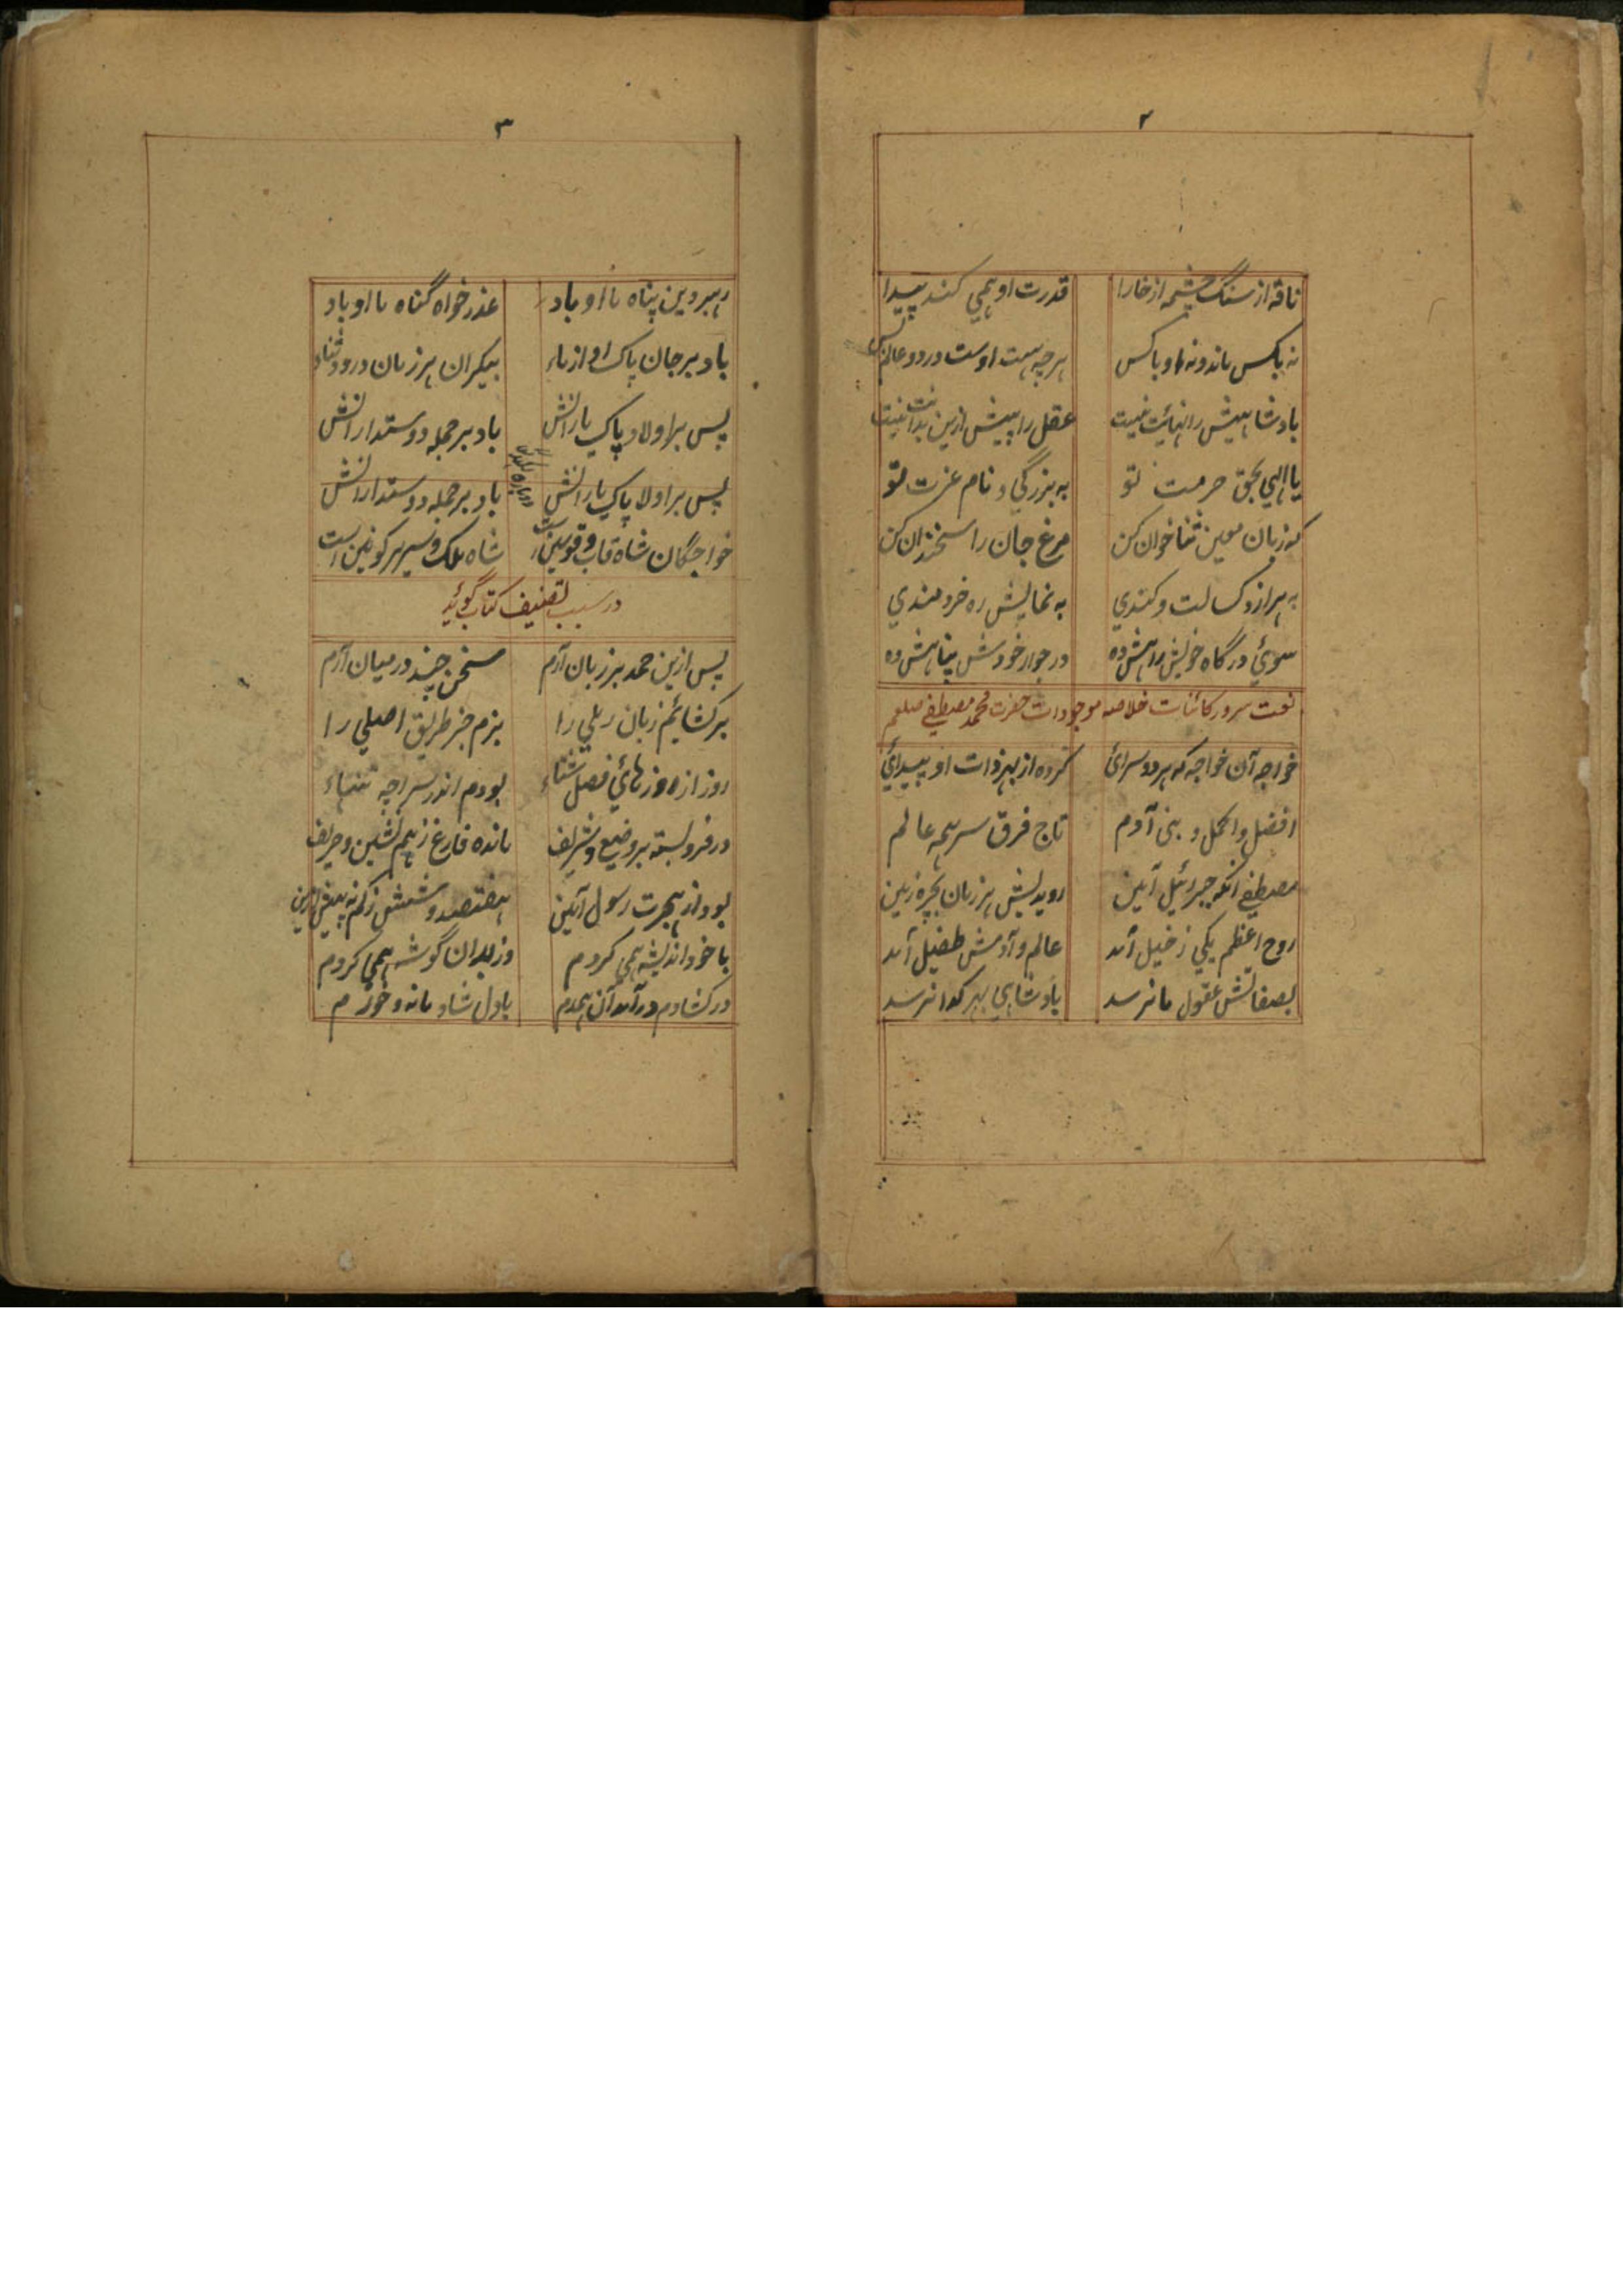 ۲
ناقه از سنگ چشمه از خارا قدرت او همی کند پیدا
نه بکس ماند و نه او با کس هر چه هست اوست در دو عالم بس
بادشاهیش را نهائت نیست عقل را پیش ازین بدانت نیست
یا الهی بحق حرمت تو به بزرگی و نام عزت تو
که زبان معین ثنا خوان کن مرغ جان را سخندان کن
به براز و کسالت و کندی به نمایش ره خردمندی
سوئ درگاه خویش راهش ده در جوار خودش پناهش ده
نعت سرور کائنات خلاصه موجودات حضرت محمد مصطفی صلعم
خواجه آن خواجه که هر دو سرائ کرده از بهر ذات او پیدائی
افضل و اکمل و بنی آدم تاج فرق سر همه عالم
مصطفی آنکه جبرئیل آمین روید پیش هر زمان بچره زمین
روح اعظم یکی ز خیل آمد عالم و آدمش طفیل آمد
بصفاتش عقول ما نرسد بادشاهی بهر گدا نرسد
۳
رهبر دین پناه ما او باد عذر خواه گناه ما او باد
باد بر جان پاک او از ماء بیکران هر زمان درود و ثناء
پس بر اولاد پاک یارانش باد بر جمله دوستدارانش
پس بر اولا پاک یارانش باد بر جمله دوستدارانش
خواجگان شاه قاب و قوسین است شاه ملک و سریر کونین است
در سبب تصنیف کتاب گوید
پس ازین حمد بر زبان آرم سخن چند درمیان آرم
برکشائم زبان رملی را بزم جز طریق اصلی را
روز از روزهائی فصل شتاء بودم اندر سراچه تنهاء
در فرو بسته بر وضیع و شریف مانده فارغ ز هم نشین و حریف
بود از هجرت رسول آمین هفتصد و شصش زکم نه بیش ازین
با خود اندیشه همی کردم وز بدان گوشه همی کردم
در کشادم در آمد آن همدم با دل شاد مانه و خورم